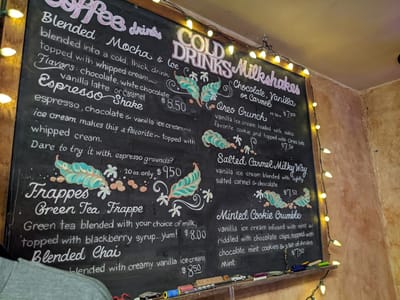 Coffee drinks
Blended Mocha, & Ice
blended into a cold, thick drink
topped with whipped cream
Flavors: chocolate, white chocolate
vanilla latte or caramel
8.50
Espresso Shake
espresso, chocolate & vanilla ice cream
ice cream makes this a favorite - topped with
whipped cream.
Dare to try it with espresso grounds?
20 oz only $9.50
Frappes
Green Tea Frappe
Green tea blended with your choice of milk,
topped with blackberry syrup.. yum!
$8.00
Blended Chai
blended with creamy vanilla ice cream
$8.50
COLD
DRINKS
Milkshakes
Chocolate, Vanilla
or Carmel
Oreo Crunch
$7.50
vanilla ice cream loaded with
favorite cookie and topped with
Salted Carmel Milky Way
vanilla ice cream blended with
salted carmel & chocolate
$7.50
Minted Cookie Crumble
vanilla ice cream infused with mint and
riddled with chocolate chips, topped with
chocolate mint cookies